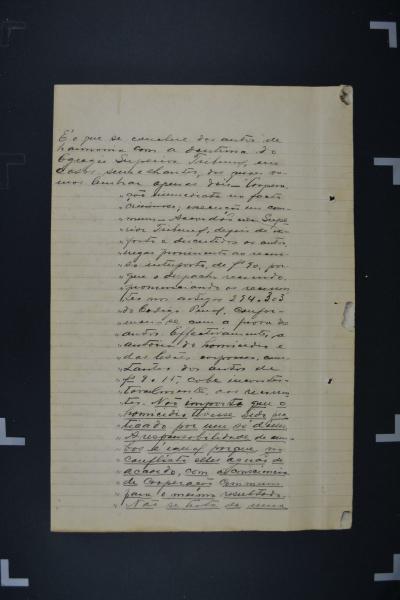 É o que se conclue dos autos de
harmonia com a doutrina do
Egregio Superior Tribunal, em
casos semelhantes, dos quaes va-
mos lembrar apenas dois — Coopera-
" ção immediata no facto
" criminoso, execução em com-
" mum — Accordão em Supe-
" rior Tribunal, depois de ex-
" posto e discutidos os autos,
" negar provimento ao recur-
" so interposto, de f. 90, por
" que o despacho recorrido,
" pronunciando os recorren-
" tes nos artigos 294 e 303
" do Codigo Penal, confor-
" mou-se com a prova dos
" autos. Effectivamente, a
" autoria do homicidio e
" das lesões corporaes, cons-
" tantes dos autos de
" f. 9 e 11, cabe incontes-
" tavelmente, aos recorren-
" tes. Não importa que o
" homicidio tivesse sido pra-
" ticado por um só d'elles.
" A responsabilidade de am-
" bos é egual porque, no
" conflicto elles de
" accordo, com a consciencia
" de cooperação commum
" para o mesmo resultado.
" Não se trata de uma